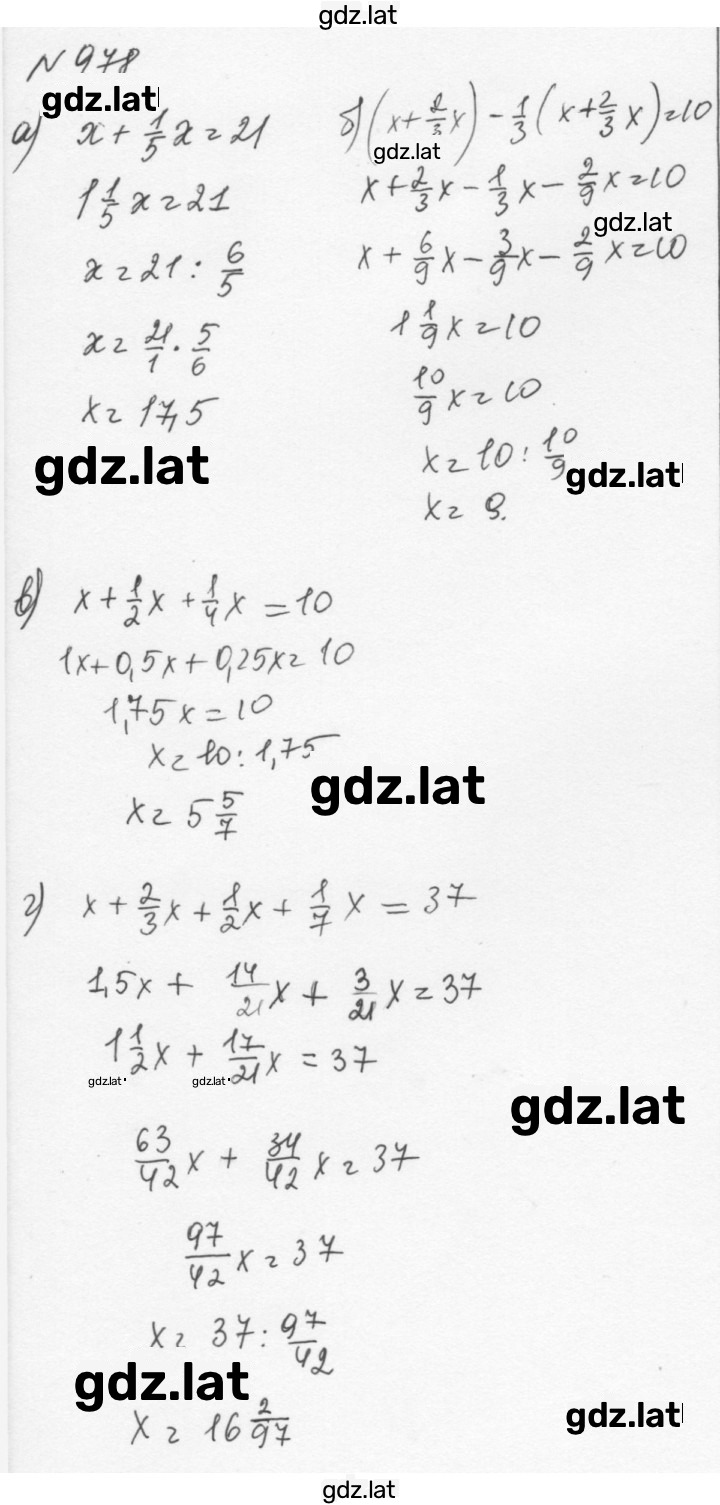 gdz.lat
N 978
gdz.lat
а) x + 1/5 x = 21
1 1/5 x = 21
x = 21 : 6/5
x = 21/1 · 5/6
x = 17,5
gdz.lat
б) (x + 2/3 x) - 1/3 (x + 2/3 x) = 10
gdz.lat
x + 2/3 x - 1/3 x - 2/9 x = 10
gdz.lat
x + 6/9 x - 3/9 x - 2/9 x = 10
1 1/9 x = 10
10/9 x = 10
x = 10 : 10/9
gdz.lat
x = 9.
в) x + 1/2 x + 1/4 x = 10
1x + 0,5x + 0,25x = 10
1,75x = 10
x = 10 : 1,75
gdz.lat
x = 5 5/7
г) x + 2/3 x + 1/2 x + 1/7 x = 37
1,5x + 14/21 x + 3/21 x = 37
1 1/2 x + 17/21 x = 37
gdz.lat gdz.lat
gdz.lat
63/42 x + 34/42 x = 37
97/42 x = 37
x = 37 : 97/42
gdz.lat
x = 16 2/97
gdz.lat
gdz.lat